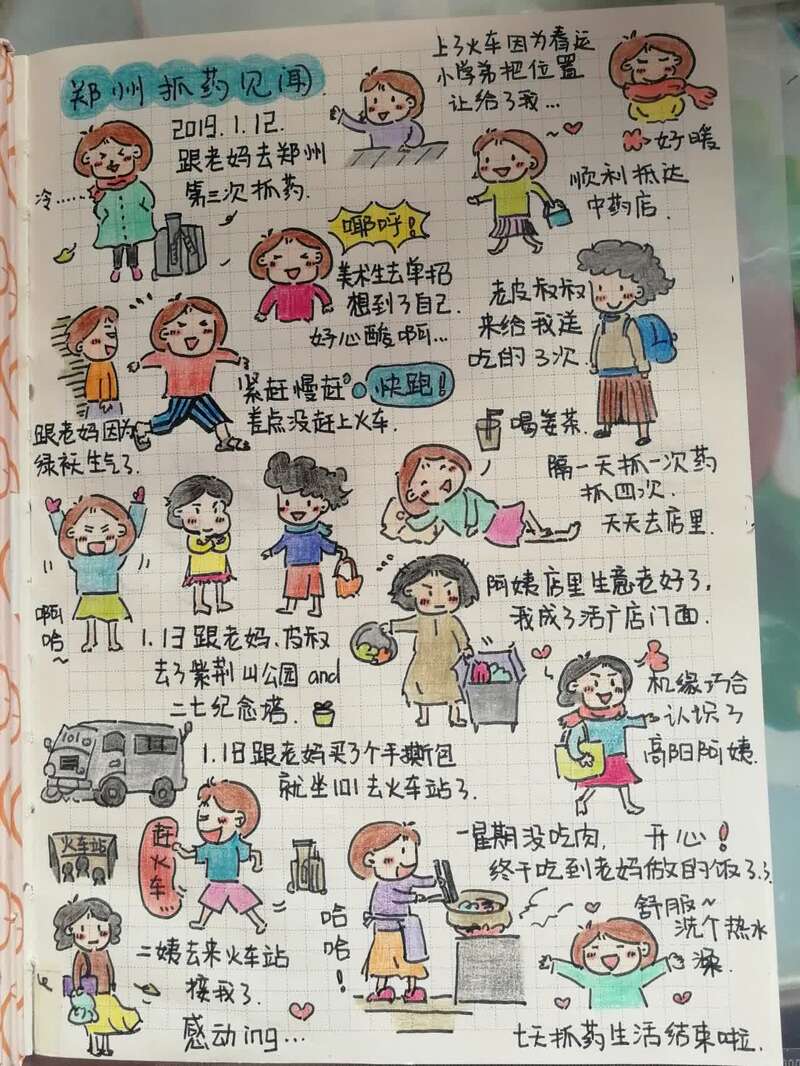 郑州抓药见闻
2019.1.12.
跟老妈去郑州
第三次抓药.
冷......
上了火车因为春运
小学弟把位置
让给了我...
好暖
顺利抵达
中药店.
耶呼!
美术生去单招
想到了自己.
好心酸啊...
老皮叔叔
来给我送
吃的了3次.
紧赶慢赶。快跑!
差点没赶上火车.
跟老妈因为
绿袄生气了.
喝姜茶.
隔一天抓一次药
抓四次.
天天去店里.
啊
哈~
1.1日跟老妈、皮叔
去了紫荆山公园and
二七纪念塔.
阿姨店里生意老好了,
我成了活广店门面.
机缘巧合
认识了
高阳阿姨.
101
1.1日跟老妈买了个手撕包
就坐101去火车站了.
火车站
赶火车
一星期没吃肉, 开心!
终于吃到老妈做的饭了.
哈
哈
!
舒服~
洗个热水
澡.
二姨去来火车站
接我了.
感动ing...
七天抓药生活结束啦.